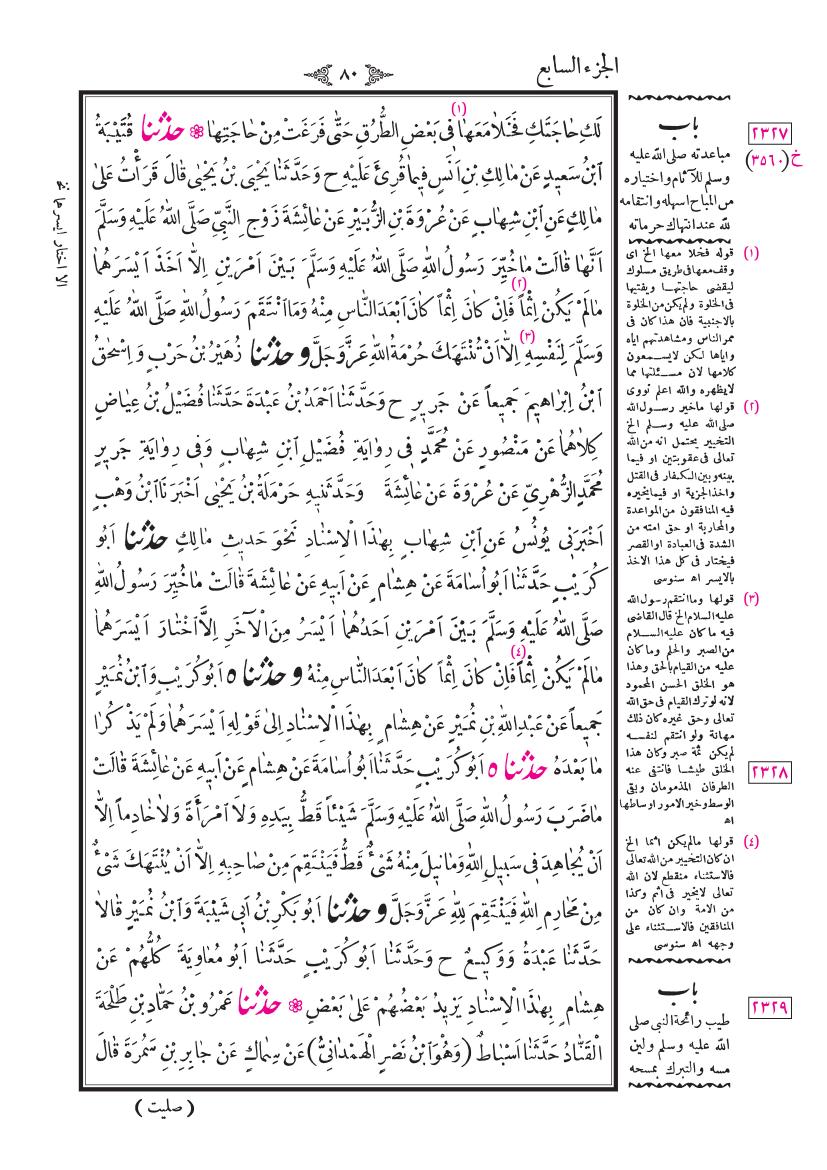 الجزء السابع
٨٠
لَكِ حَاجَتَكِ فَخَلَا مَعَهَا (١) فِي بَعْضِ الطُّرُقِ حَتّٰى فَرَغَتْ مِنْ حَاجَتِهَا ❁ حدثنا قُتَيْبَةُ
ابْنُ سَعِيدٍ عَنْ مَالِكِ بْنِ اَنَسٍ فِيمَا قُرِئَ عَلَيْهِ ح وَحَدَّثَنَا يَحْيَى بْنُ يَحْيٰى قَالَ قَرَأْتُ عَلٰى
مَالِكٍ عَنِ ابْنِ شِهَابٍ عَنْ عُرْوَةَ بْنِ الزُّبَيْرِ عَنْ عَائِشَةَ زَوْجِ النَّبِيِّ صَلَّى اللهُ عَلَيْهِ وَسَلَّمَ
اَنَّهَا قَالَتْ مَا خُيِّرَ رَسُولُ اللهِ صَلَّى اللهُ عَلَيْهِ وَسَلَّمَ بَيْنَ اَمْرَيْنِ اِلَّا اَخَذَ اَيْسَرَهُمَا
مَالَمْ يَكُنْ اِثْماً (٢) فَاِنْ كَانَ اِثْماً كَانَ اَبْعَدَ النَّاسِ مِنْهُ وَمَا انْتَقَمَ رَسُولُ اللهِ صَلَّى اللهُ عَلَيْهِ
وَسَلَّمَ لِنَفْسِهِ (٣) اِلَّا اَنْ تُنْتَهَكَ حُرْمَةُ اللهِ عَزَّ وَجَلَّ وحدثنا زُهَيْرُ بْنُ حَرْبٍ وَاِسْحٰقُ
ابْنُ اِبْرَاهِيمَ جَمِيعاً عَنْ جَرِيرٍ ح وَحَدَّثَنَا اَحْمَدُ بْنُ عَبْدَةَ حَدَّثَنَا فُضَيْلُ بْنُ عِيَاضٍ
كِلَاهُمَا عَنْ مَنْصُورٍ عَنْ مُحَمَّدٍ فِي رِوَايَةِ فُضَيْلٍ اِبْنِ شِهَابٍ وَفِي رِوَايَةِ جَرِيرٍ
مُحَمَّدٍ الزُّهْرِيِّ عَنْ عُرْوَةَ عَنْ عَائِشَةَ وَحَدَّثَنِيهِ حَرْمَلَةُ بْنُ يَحْيٰى اَخْبَرَنَا ابْنُ وَهْبٍ
اَخْبَرَنِي يُونُسُ عَنِ ابْنِ شِهَابٍ بِهٰذَا الْاِسْنَادِ نَحْوَ حَدِيثِ مَالِكٍ حدثنا اَبُو
كُرَيْبٍ حَدَّثَنَا اَبُو اُسَامَةَ عَنْ هِشَامٍ عَنْ اَبِيهِ عَنْ عَائِشَةَ قَالَتْ مَا خُيِّرَ رَسُولُ اللهِ
صَلَّى اللهُ عَلَيْهِ وَسَلَّمَ بَيْنَ اَمْرَيْنِ اَحَدُهُمَا اَيْسَرُ مِنَ الْآخَرِ اِلَّا اخْتَارَ اَيْسَرَهُمَا
مَالَمْ يَكُنْ اِثْماً (٤) فَاِنْ كَانَ اِثْماً كَانَ اَبْعَدَ النَّاسِ مِنْهُ وحدثنا ٥ اَبُو كُرَيْبٍ وَابْنُ نُمَيْرٍ
جَمِيعاً عَنْ عَبْدِ اللهِ بْنِ نُمَيْرٍ عَنْ هِشَامٍ بِهٰذَا الْاِسْنَادِ اِلٰى قَوْلِهِ اَيْسَرَهُمَا وَلَمْ يَذْكُرَا
مَا بَعْدَهُ حدثنا ٥ اَبُو كُرَيْبٍ حَدَّثَنَا اَبُو اُسَامَةَ عَنْ هِشَامٍ عَنْ اَبِيهِ عَنْ عَائِشَةَ قَالَتْ
مَاضَرَبَ رَسُولُ اللهِ صَلَّى اللهُ عَلَيْهِ وَسَلَّمَ شَيْئاً قَطُّ بِيَدِهِ وَلَا امْرَأَةً وَلَا خَادِماً اِلَّا
اَنْ يُجَاهِدَ فِي سَبِيلِ اللهِ وَمَا نِيلَ مِنْهُ شَيْءٌ قَطُّ فَيَنْتَقِمَ مِنْ صَاحِبِهِ اِلَّا اَنْ يُنْتَهَكَ شَيْءٌ
مِنْ مَحَارِمِ اللهِ فَيَنْتَقِمَ لِلّٰهِ عَزَّ وَجَلَّ وحدثنا اَبُو بَكْرِ بْنُ اَبِي شَيْبَةَ وَابْنُ نُمَيْرٍ قَالَا
حَدَّثَنَا عَبْدَةُ وَوَكِيعٌ ح وَحَدَّثَنَا اَبُو كُرَيْبٍ حَدَّثَنَا اَبُو مُعَاوِيَةَ كُلُّهُمْ عَنْ
هِشَامٍ بِهٰذَا الْاِسْنَادِ يَزِيدُ بَعْضُهُمْ عَلٰى بَعْضٍ ❁ حدثنا عَمْرُو بْنُ حَمَّادِ بْنِ طَلْحَةَ
الْقَنَّادُ حَدَّثَنَا اَسْبَاطٌ (وَهُوَ ابْنُ نَصْرٍ الْهَمْدَانِيُّ) عَنْ سِمَاكٍ عَنْ جَابِرِ بْنِ سَمُرَةَ قَالَ
(صليت)
٢٣٢٧
خ (٣٥٦٠)
باب
مباعدته صلى الله عليه
وسلم للآثام واختياره
من المباح اسهله وانتقامه
لله عند انتهاك حرماته
(١) قوله فخلا معها الخ اى
وقف معها فى طريق مسلوك
ليقضى حاجتها ويفتيها
فى الخلوة ولم يكن من الخلوة
بالاجنبية فان هذا كان فى
ممر الناس ومشاهدتهم اياه
واياها لكن لا يسمعون
كلامها لان مسئلتها مما
لا يظهره والله اعلم نووى
(٢) قولها ماخير رسول الله
صلى الله عليه وسلم الخ
التخيير يحتمل انه من الله
تعالى فى عقوبتين او فيما
بينه وبين الكفار فى القتل
واخذ الجزية او فيما يخيره
فيه المنافقون من المواعدة
والمحاربة او حق امته من
الشدة فى العبادة او القصر
فيختار فى كل هذا الاخذ
بالايسر اه سنوسى
(٣) قولها وما انتقم رسول الله
عليه السلام الخ قال القاضى
فيه ما كان عليه السلام
من الصبر والحلم وما كان
عليه من القيام بالحق وهذا
هو الخلق الحسن المحمود
لانه لو ترك القيام فى حق الله
تعالى وحق غيره كان ذلك
مهانة ولو انتقم لنفسه
لم يكن ثمة صبر وكان هذا
الخلق طيشا فانتفى عنه
الطرفان المذمومان وبقى
الوسط وخير الامور اوساطها
اه
٢٣٢٨
(٤) قولها مالم يكن اثما الخ
ان كان التخيير من الله تعالى
فالاستثناء منقطع لان الله
تعالى لا يخير فى اثم وكذا
من الامة وان كان من
المنافقين فالاستثناء على
وجهه اه سنوسى
٢٣٢٩
باب
طيب رائحة النبى صلى
الله عليه وسلم ولين
مسه والتبرك بمسحه
الا اختار ايسرهما نخ